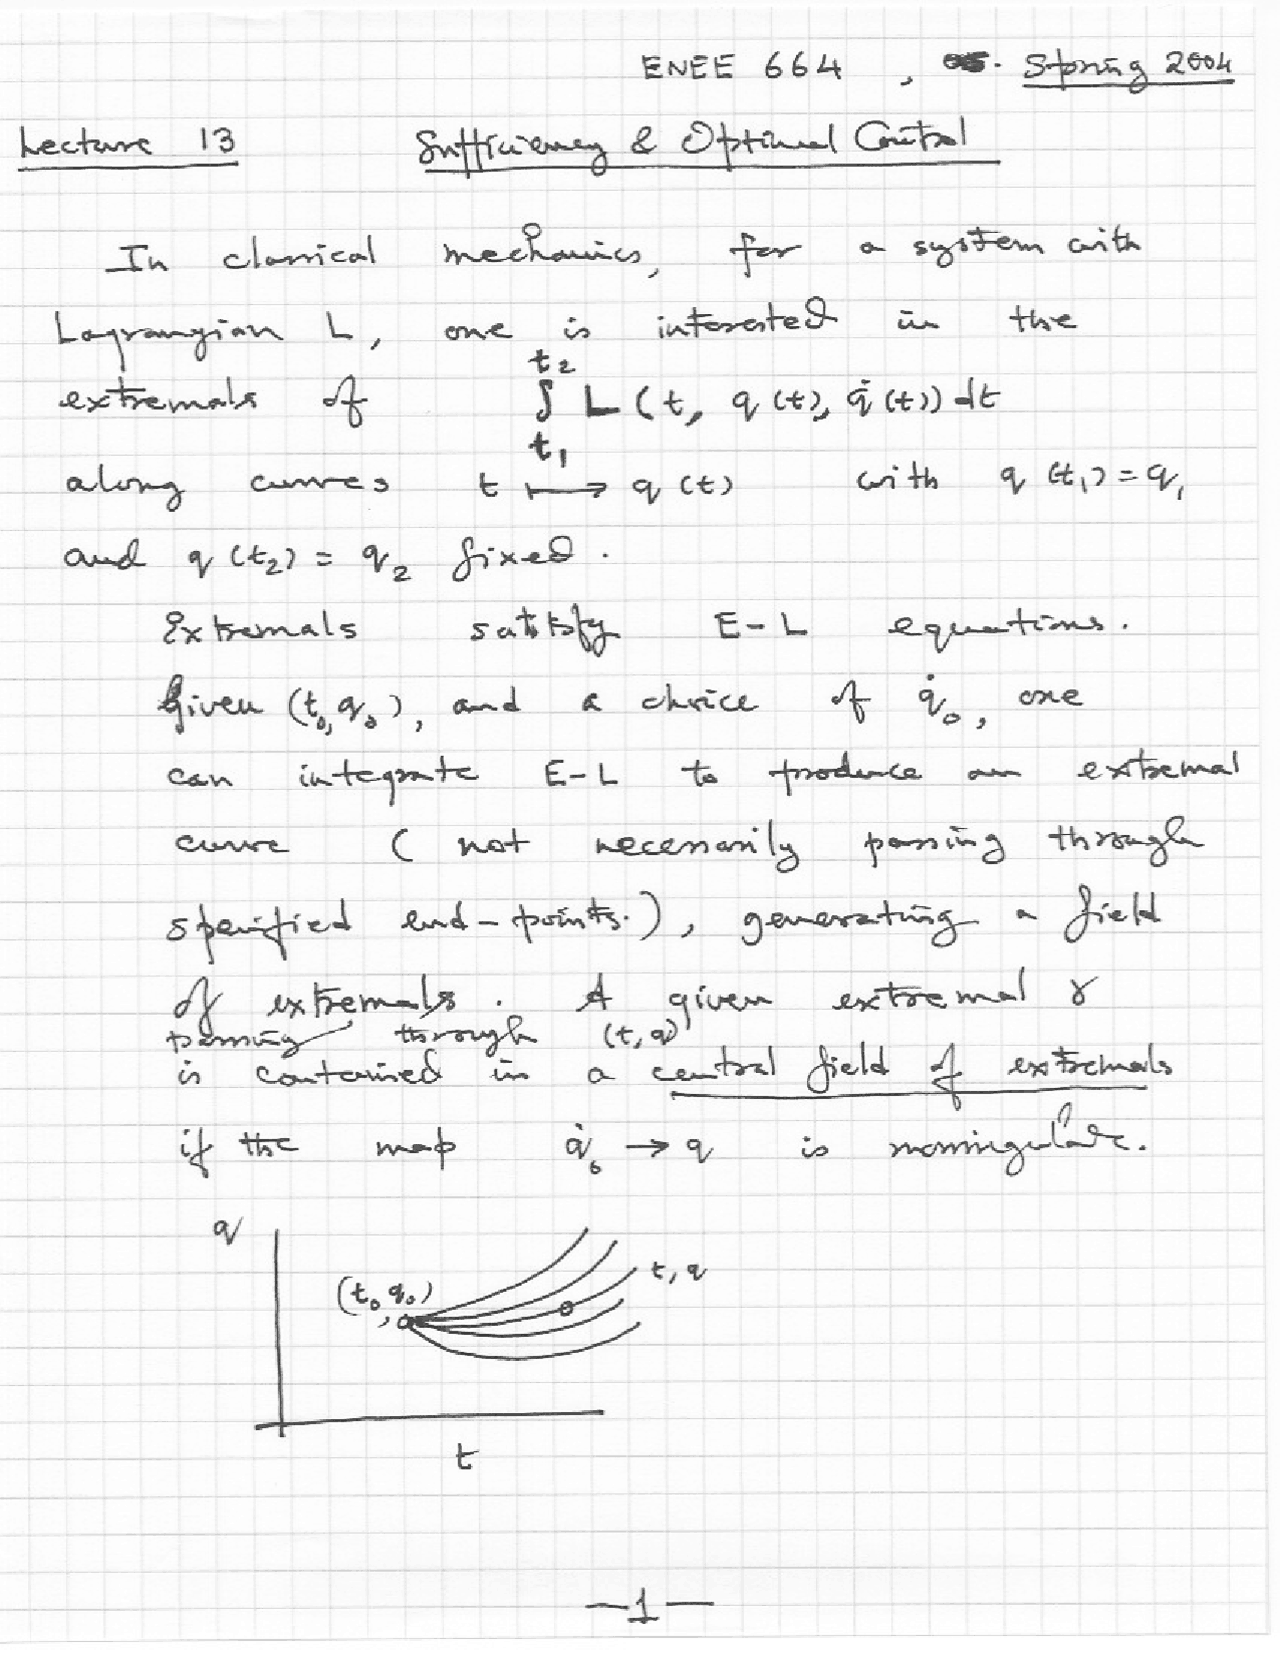 ENEE 664 , Spring 2004
Lecture 13 Sufficiency & Optimal Control
In classical mechanics, for a system with
Lagrangian L, one is interested in the
extremals of ∫_{t_1}^{t_2} L(t, q(t), q̇(t)) dt
along curves t ↦ q(t) with q(t_1) = q_1
and q(t_2) = q_2 fixed.
Extremals satisfy E-L equations.
Given (t_0, q_0), and a choice of q̇_0, one
can integrate E-L to produce an extremal
curve (not necessarily passing through
specified end-points.), generating a field
of extremals. A given extremal γ
passing through (t, q)
is contained in a central field of extremals
if the map q̇_0 → q is nonsingular.
q
(t_0, q_0)
t, q
t
—1—